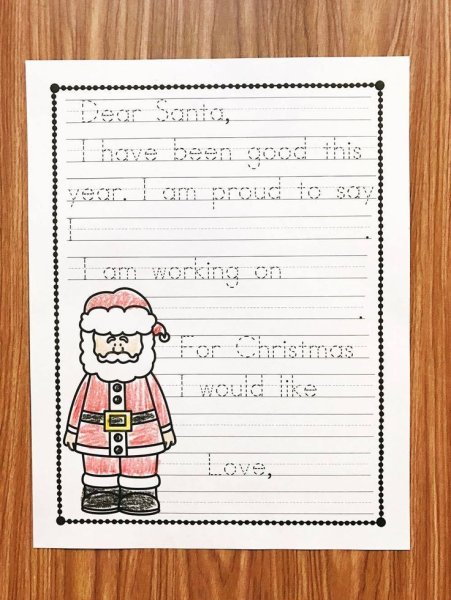 Dear Santa,
I have been good this
year. I am proud to say
I .
I am working on
.
For Christmas
I would like
Love,